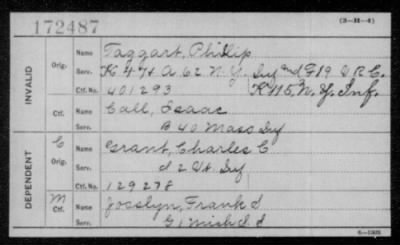 172487
(3-33-4)
INVALID
Orig. Name Taggart, Phillip
Serv. K 4 H A. 62 N. Y. Inf and G 19 V R C.
Ctf. No. 401293 K 115, N. Y. Inf.
Ctf. Name Call, Isaac
Serv. B 40 Mass Inf
DEPENDENT
C Orig. Name Grant, Charles C
Serv. I 2 Vt. Inf
Ctf. No. 129278
M Ctf. Name Josslyn, Frank
Serv. G 1 Mich